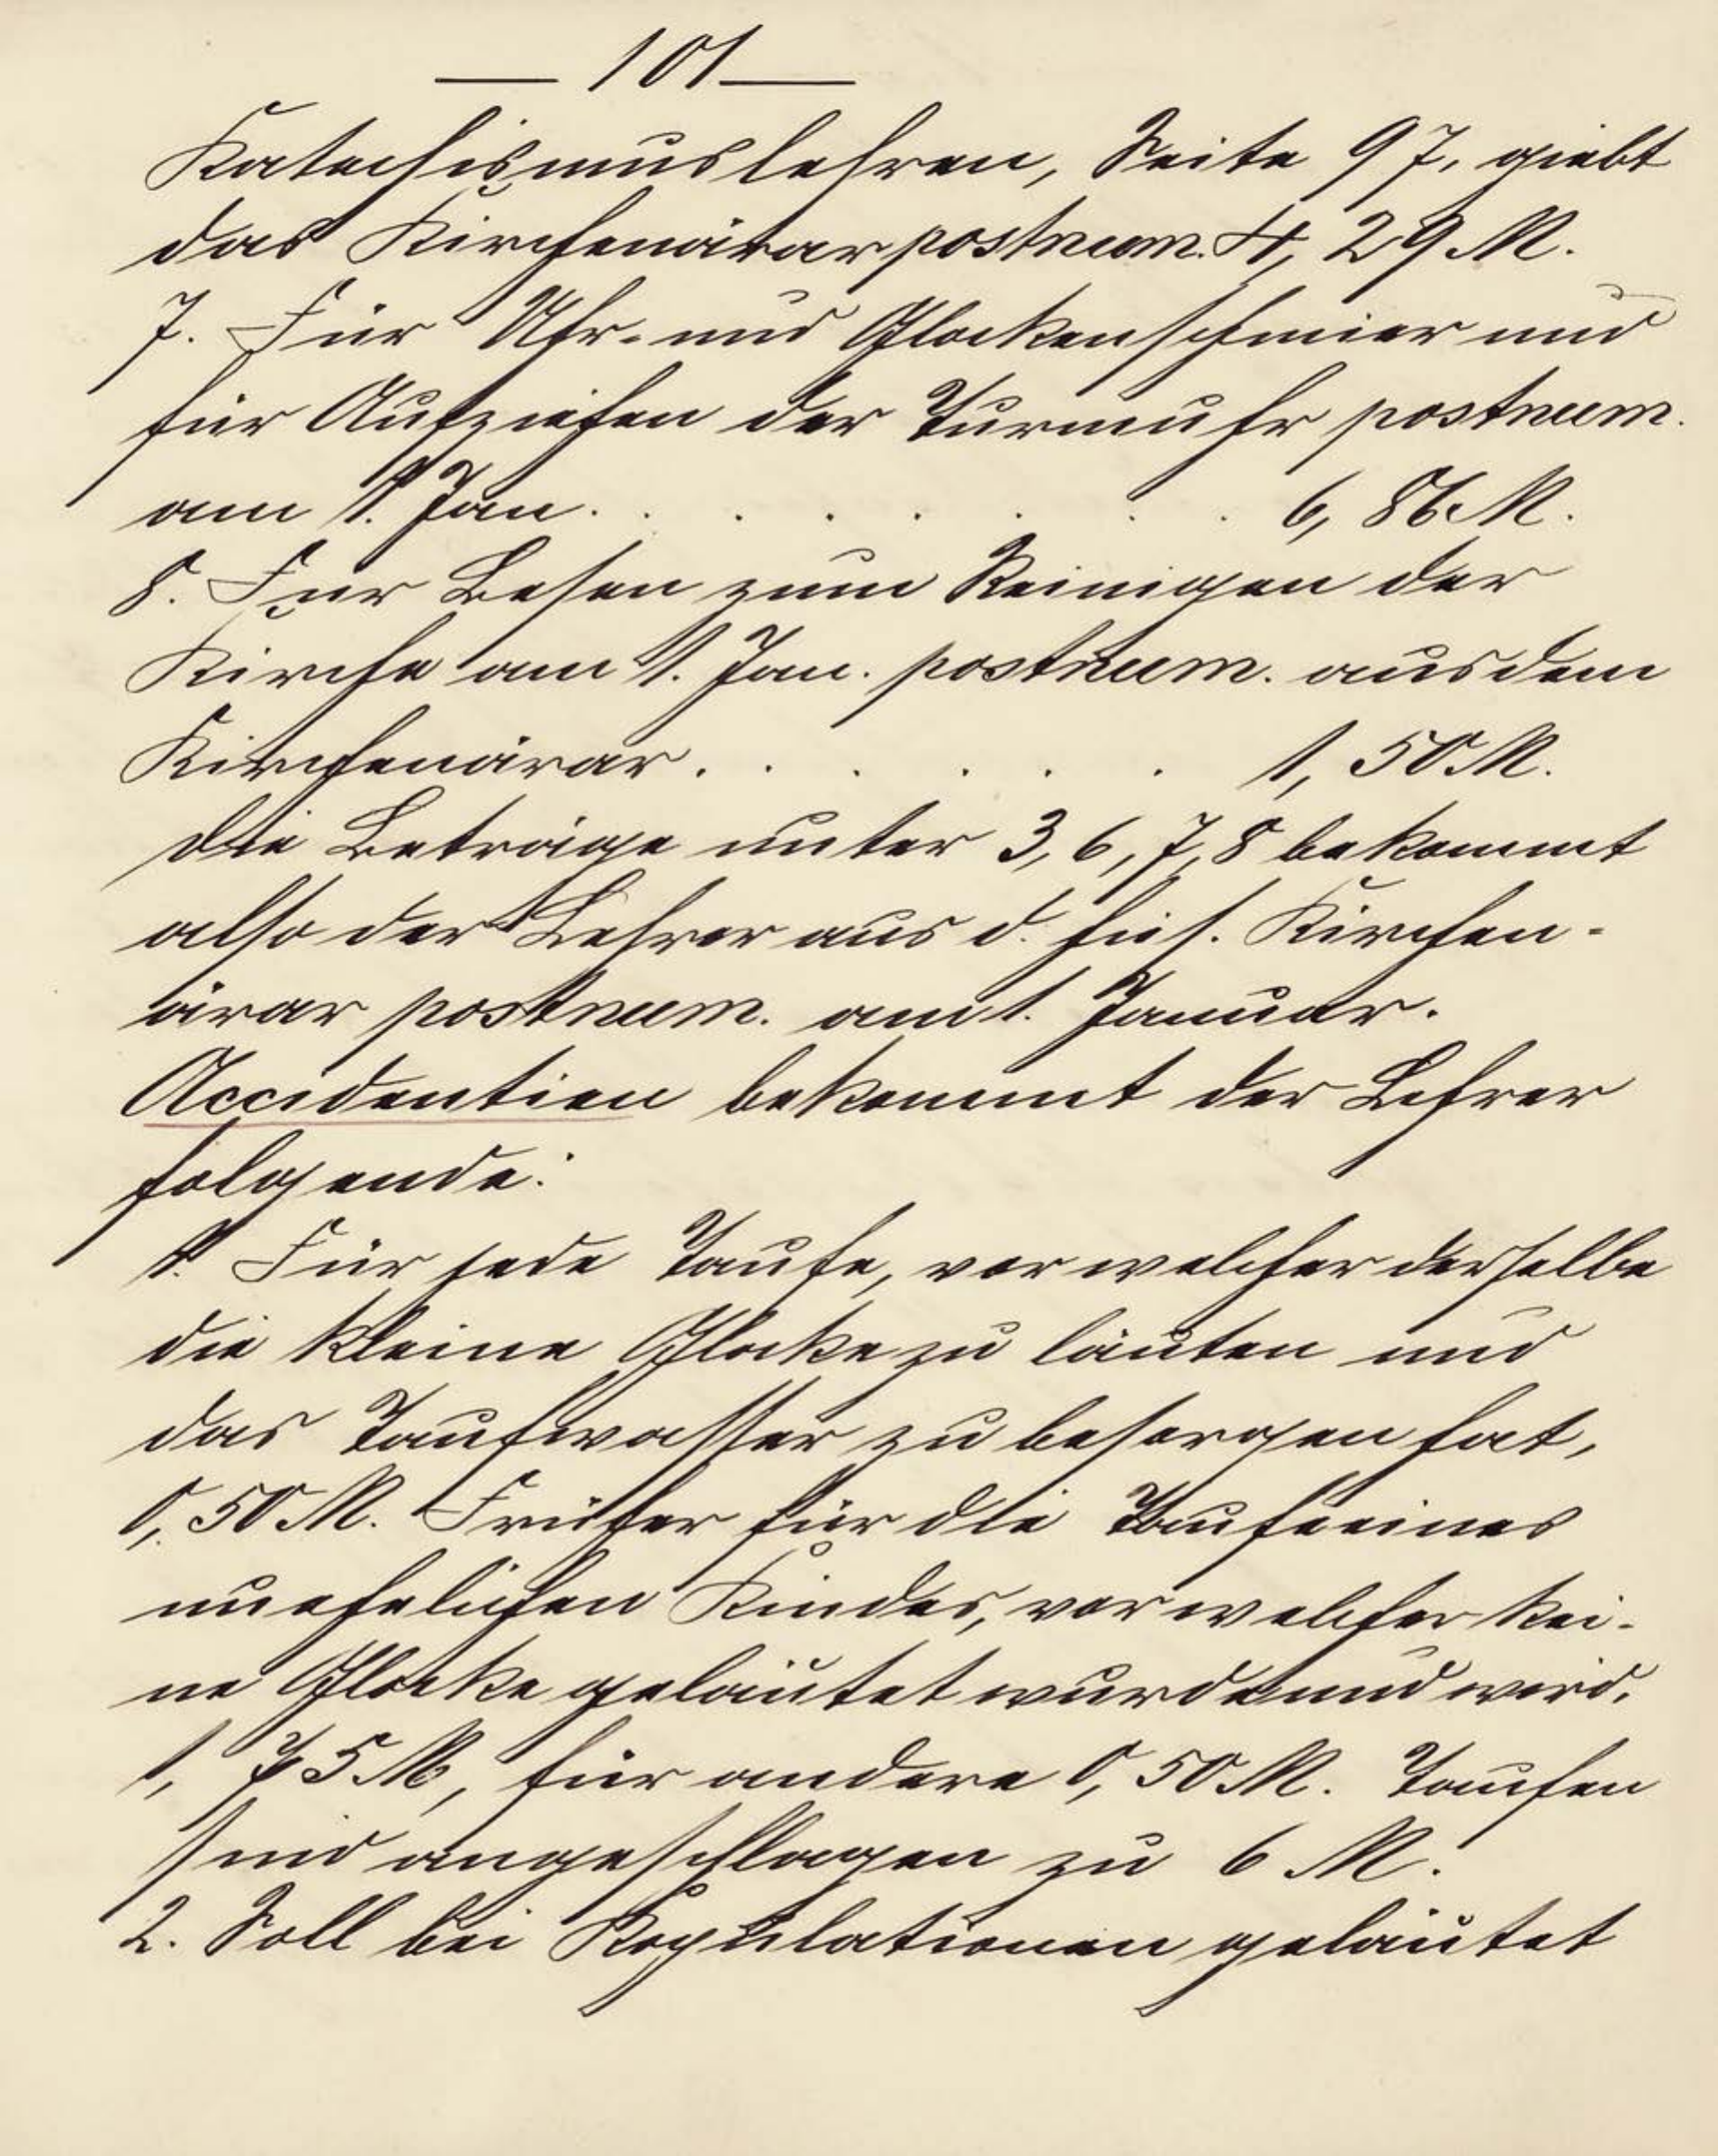 — 101 —
Katechismuslehren, Seite 97, giebt
das Kirchenärar postnum. 4, 29 M.
7. Für Uhr- und Glockenschmier und
für Aufziehen der Turmuhr postnum.
am 1. Jan. . . . . . . . 6, 86 M.
8. Für Besen zum Reinigen der
Kirche am 1. Jan. postnum. aus dem
Kirchenärar . . . . . . 1, 50 M.
Die Beträge unter 3, 6, 7, 8 bekommt
also der Lehrer aus d. hies. Kirchen-
ärar postnum. am 1. Januar.
Accidentien bekommt der Lehrer
folgende:
1. Für jede Taufe, vor welcher derselbe
die kleine Glocke zu läuten und
das Taufwasser zu besorgen hat,
0, 50 M. Früher für die Taufe eines
unehelichen Kindes, vor welcher kei-
ne Glocke geläutet wurde und wird,
1, 75 M, für andere 0, 50 M. Taufen
sind angeschlagen zu 6 M.
2. Soll bei Kopulationen geläutet